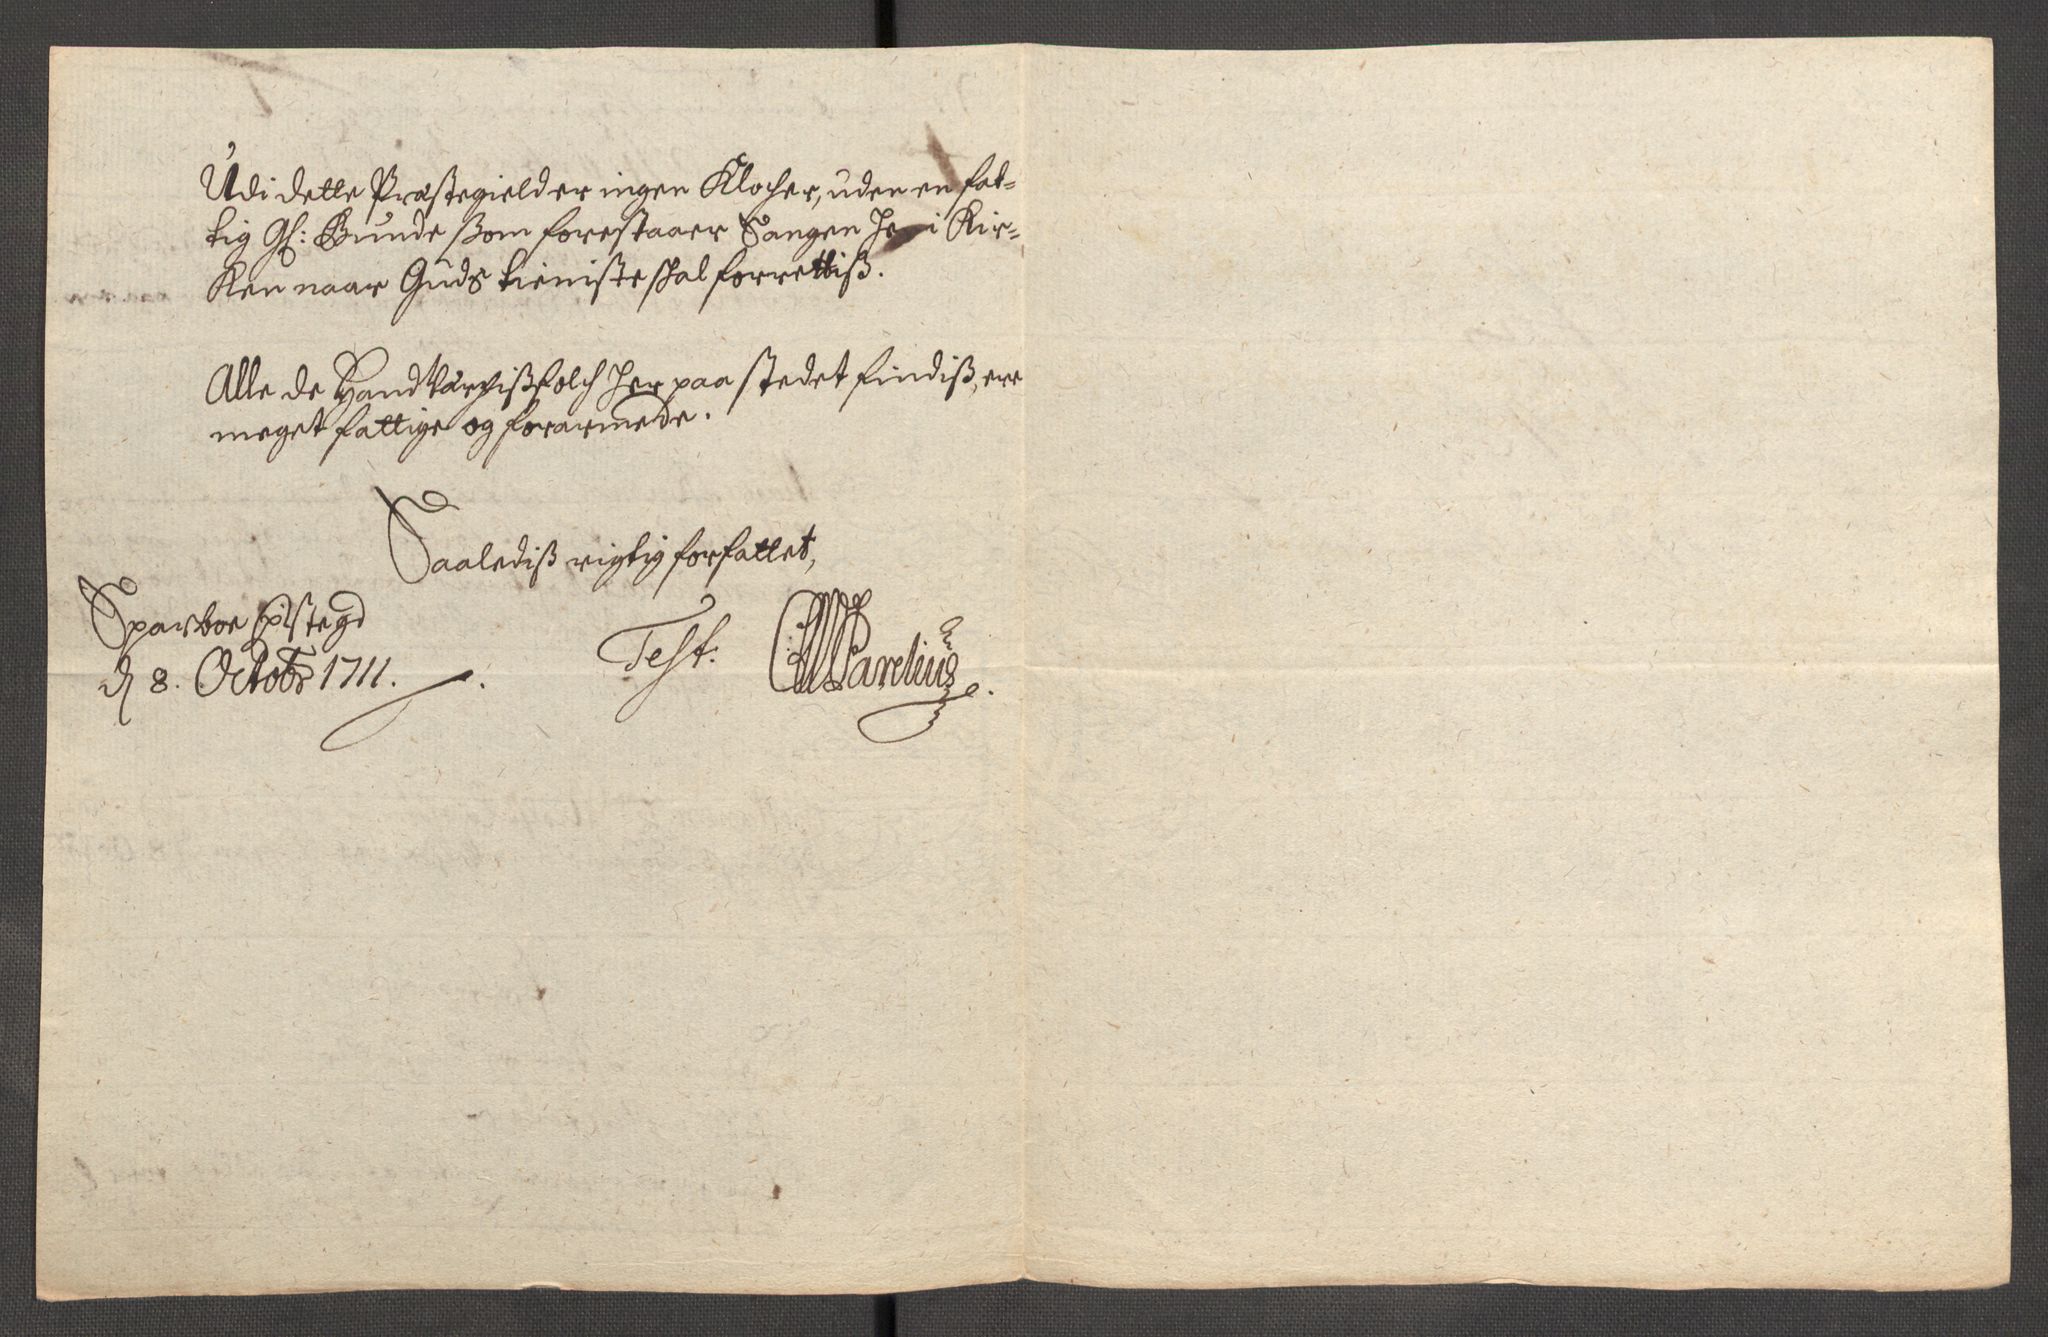 Udi dette Præstegield er ingen Klocher, uden en fat-
tig Gl: Bunde ßom forestaaer Sangen her i Kir-
ken naar Guds tieniste skal forrettiß.
Alle de Handtværchißfolch her paa stedet findiß, ere
meget fattige og forarmede.
Saalediß rigtig forfattet,
Sparboe Pstegd
d 8. Octobr 1711.
Test:
Parelius